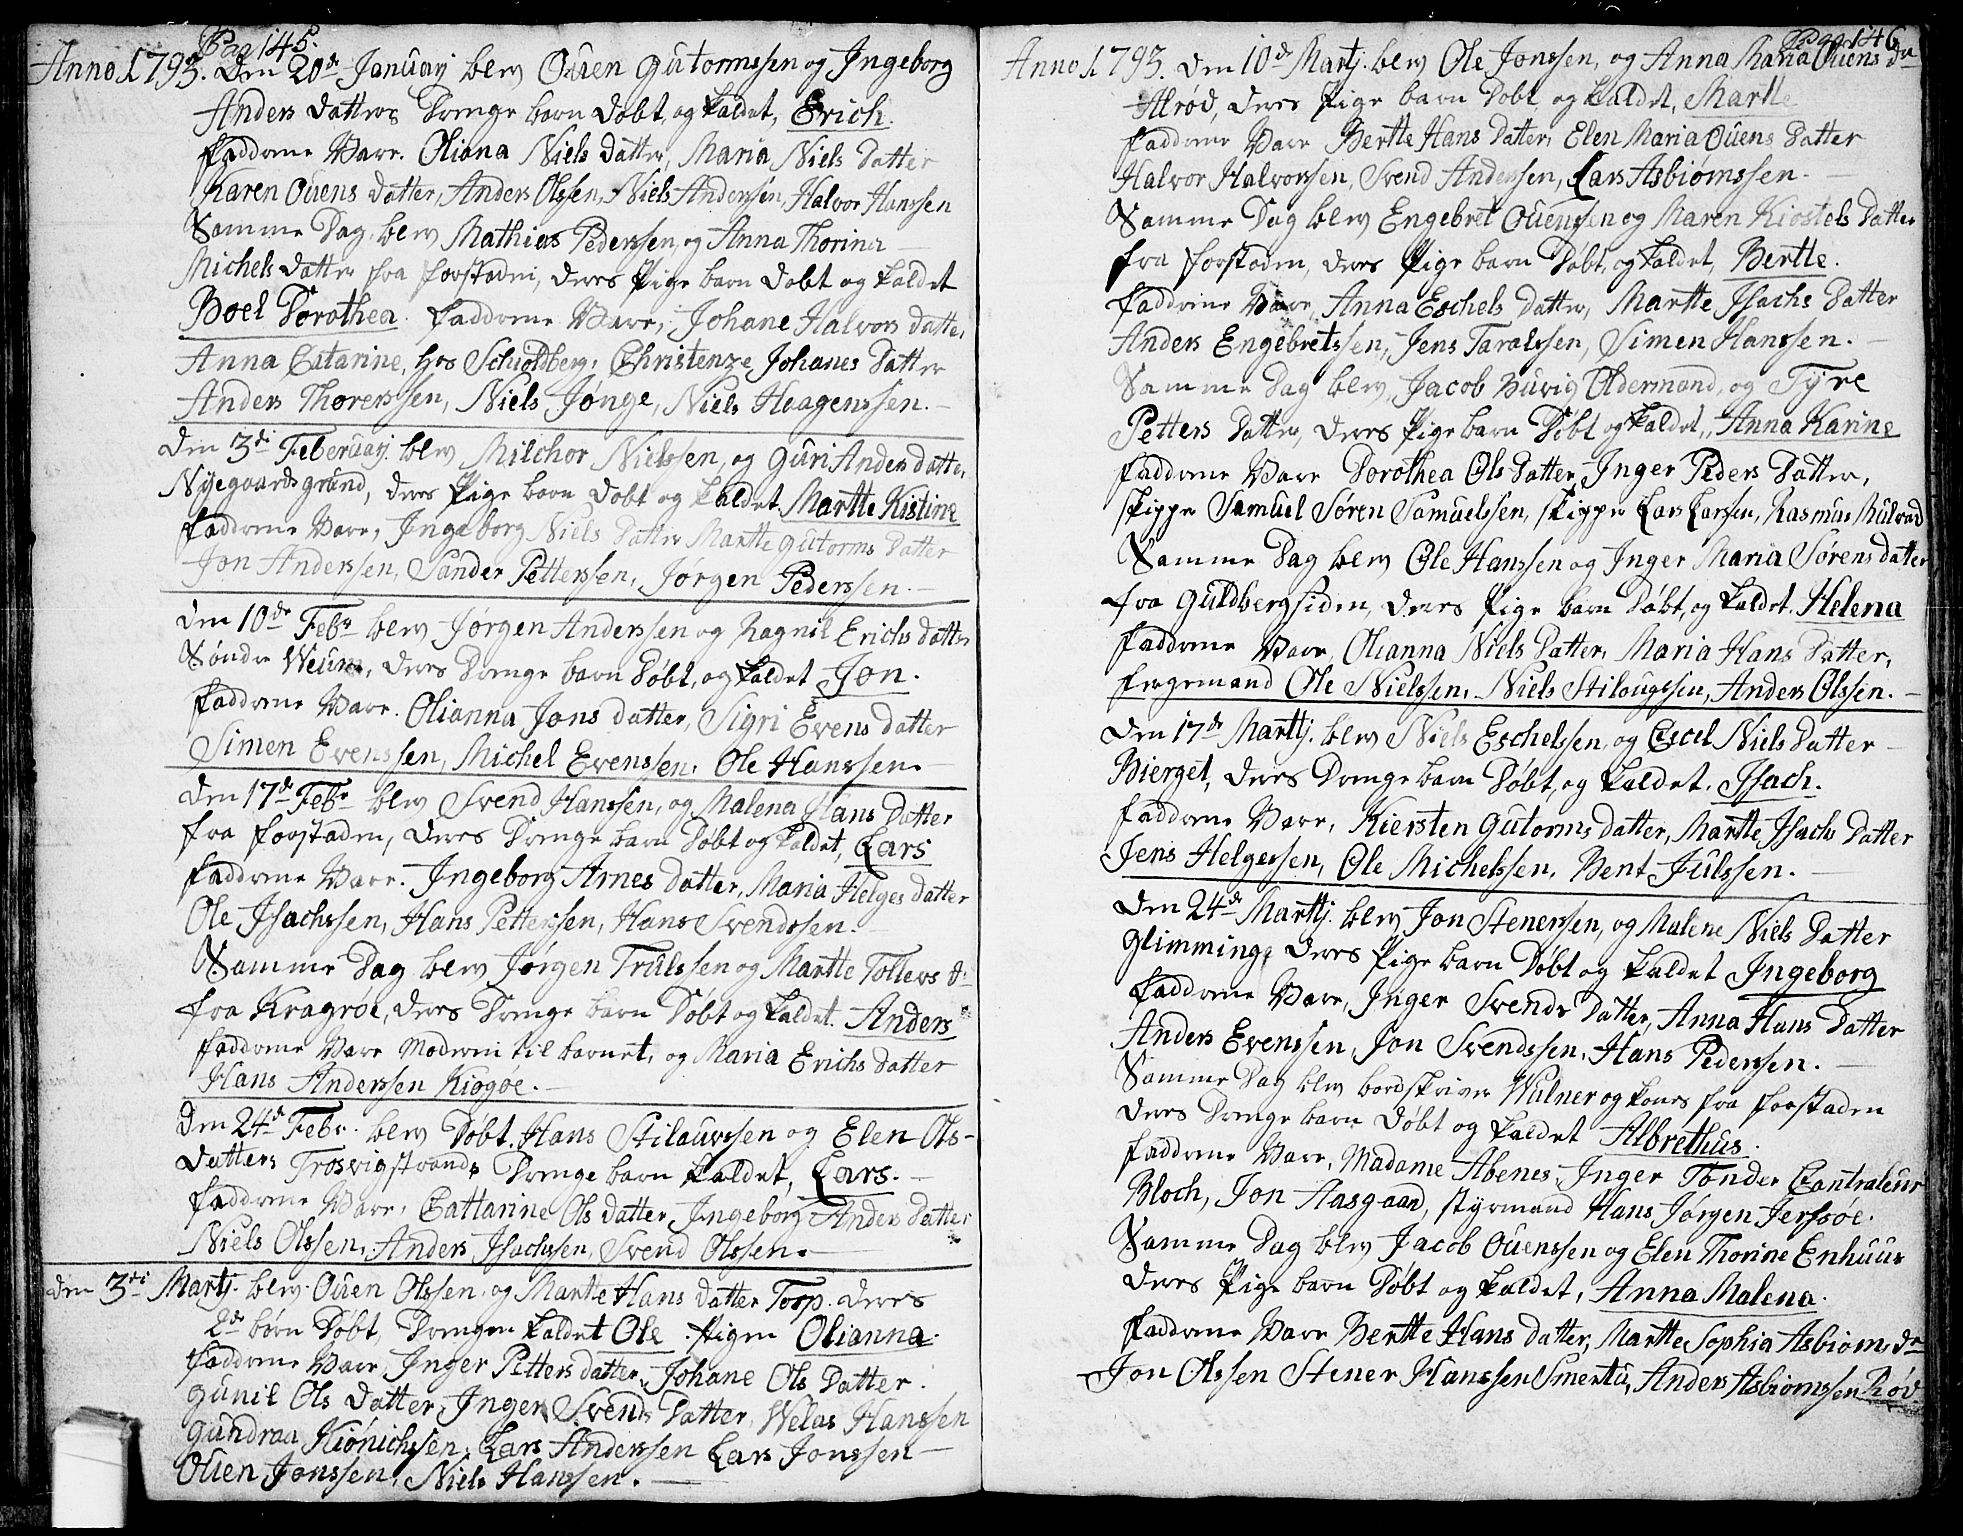 Pag 145.
Anno 1793. Den 20de Januarj blev Ouen Gutormssen og Ingeborg
Anders Datters Drenge barn Døbt, og kaldet, Erich.
Faddrene Vare. Oliana Niels Datter, Maria Niels Datter
Karen Ouens Datter, Anders Olssen, Niels Anderssen, Halvor Hanssen
Samme Dag blev Mathias Pederssen og Anna Thorina
Michels Datter fra Forstaden, deres Pige barn Døbt og kaldet
Boel Dorothea. Faddrene Vare, Johane Halvors datter,
Anna Catarine, hos Schioldberg, Christenze Johanes Datter
Anders Thorerssen, Niels Jonge, Niels Haagenssen.
Den 3di Feberuarj blev Milchor Nielssen, og Guri Anders datter,
Nyegaardsgrund, deres Pige barn Døbt og kaldet Martte Kistine
Faddrene Vare, Ingeborg Niels Datter Martte Gutorms Datter
Jon Anderssen, Sander Petterssen, Jørgen Pederssen.
Den 10de Febr blev Jørgen Anderssen og Ragnil Erichs datter
Søndre Weum, deres Drenge barn Døbt, og kaldet Jon.
Faddrene Vare. Olianna Jons datter, Sigri Evens datter
Simen Evenssen, Michel Evenssen, Ole Hanssen.
Den 17de Febr blev Svend Hanssen, og Malena Hans Datter
fra Forstaden, deres Drenge barn Døbt og kaldet, Lars
Faddrene Vare. Ingeborg Arnes datter, Maria Helges datter
Ole Isachssen, Hans Petterssen, Hans Svendssen.
Samme Dag blev Jørgen Trulssen og Martte Tollevs dr
fra Kragrøe, deres Drenge barn Døbt og kaldet. Anders
Faddrene Vare Moderen til barnet, og Maria Erichs datter
Hans Anderssen Kiøgøe.
Den 24de Febr. blev Døbt. Hans Stilaurssen og Elen Ols-
datters Trosvigstrands Drenge barn kaldet, Lars.
Faddrene Vare, Cattarine Ols datter, Ingeborg Anders datter
Niels Olssen, Anders Isachssen, Svend Olssen.
Den 3di Martj. blev Ouen Olssen og Martte Hans datter Torp. deres
2de børn Døbt, Drengen kaldet Ole. Pigen Olianna.
Faddrene Vare, Inger Pitters datter, Johane Ols Datter.
Gunil Ols datter, Inger Svends Datter, Welas Hanssen
Gundraa Kiønichssen, Lars Anderssen Lars Jonssen
Ouen Jonssen, Niels Hanssen.
Pag 146
Anno 1793. Den 10de Martj. blev Ole Jonssen, og Anna Maria Ouens dr
Alrød, deres Pige barn Døbt, og kaldet, Martte
Faddrene Vare Bertte Hans Datter, Elen Maria Ouens Datter
Halvor Halvorssen, Svend Anderssen, Lars Asbiørnssen.
Samme Dag blev Engebret Ouenssen og Maren Kiostels Datter
fra Forstaden, deres Pige barn Døbt, og kaldet, Bertte.
Faddrene Vare, Anna Eschels Datter, Martte Isachs Datter
Anders Engebretssen, Jens Taralssen, Simen Hanssen.
Samme Dag blev, Jacob Huvig Oldermand, og Tyre
Petters Datter, deres Pige barn Døbt og kaldet, Anna Karine
Faddrene Vare Dorothea Ols Datter, Inger Peders Datter,
Skipper Samuel Søren Samuelssen, Skipper Lars Larssen, Rasmus Mulvad
Samme Dag blev Ole Hanssen og Inger Maria Sørens datter
fra Guldbergsiden, deres Pige barn Døbt, og kaldet. Helena
Faddrene Vare, Olianna Niels Datter, Maria Hans Datter,
Færgemand Ole Nielssen, Niels Stilougssen, Anders Olssen.
Den 17de Marttj. blev Niels Eschelssen, og Cicel Niels Datter
Bierget, deres Drenge barn Døbt, og kaldet. Isach.
Faddrene Vare, Kiersten Gutorms datter, Martte Isachs Datter
Jens Helgessen, Ole Michelssen, Bent Julssen.
Den 24de Marttj. blev Jon Stenerssen, og Malene Niels Datter
Glimminge deres Pige barn Døbt og kaldet Ingeborg
Faddrene Vare, Inger Svends Datter, Anna Hans Datter
Anders Evenssen, Jon Svendssen, Hans Pederssen.
Samme Dag blev bordskriver Wulner og kones fra Forstaden
deres Drenge barn Døbt og kaldet Albrethus.
Faddrene Vare, Madame Abenes, Inger Tønder Contraleur
Bloch, Jon Aasgaard, Styrmand Hans Jørgen Jerssøe.
Samme Dag blev Jacob Ouenssen og Elen Thorine Enhuus
deres Pige barn Døbt og kaldet, Anna Malena.
Faddrene Vare Bertte Hans datter, Martte Sophia Asbiørns dr
Jon Olssen Stener Hanssen Smertu, Anders Asbiørnssen Rød